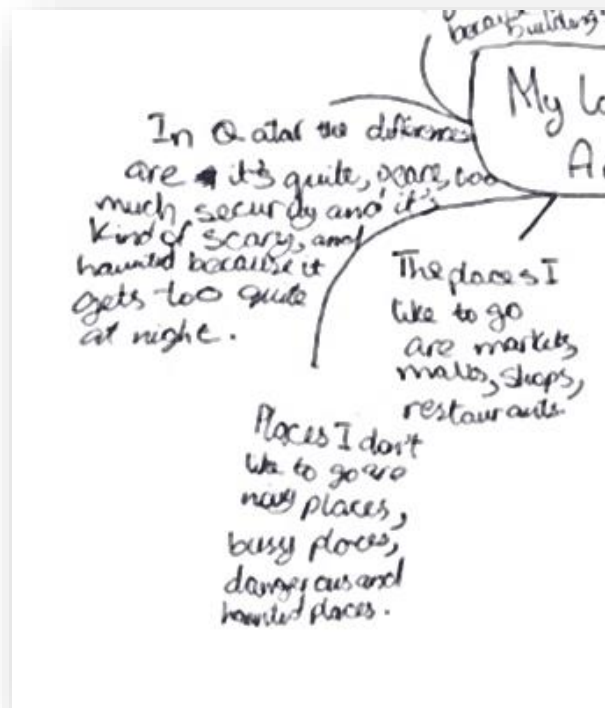 because
building
My lo
A
In Qatar the differences
are it's quite, scare, too
much security and it's
kind of scary, and
haunted because it
gets too quite
at night.
The places I
like to go
are markets,
malls, shops,
restaurants.
Places I don't
like to go are
noisy places,
busy places,
dangerous and
haunted places.